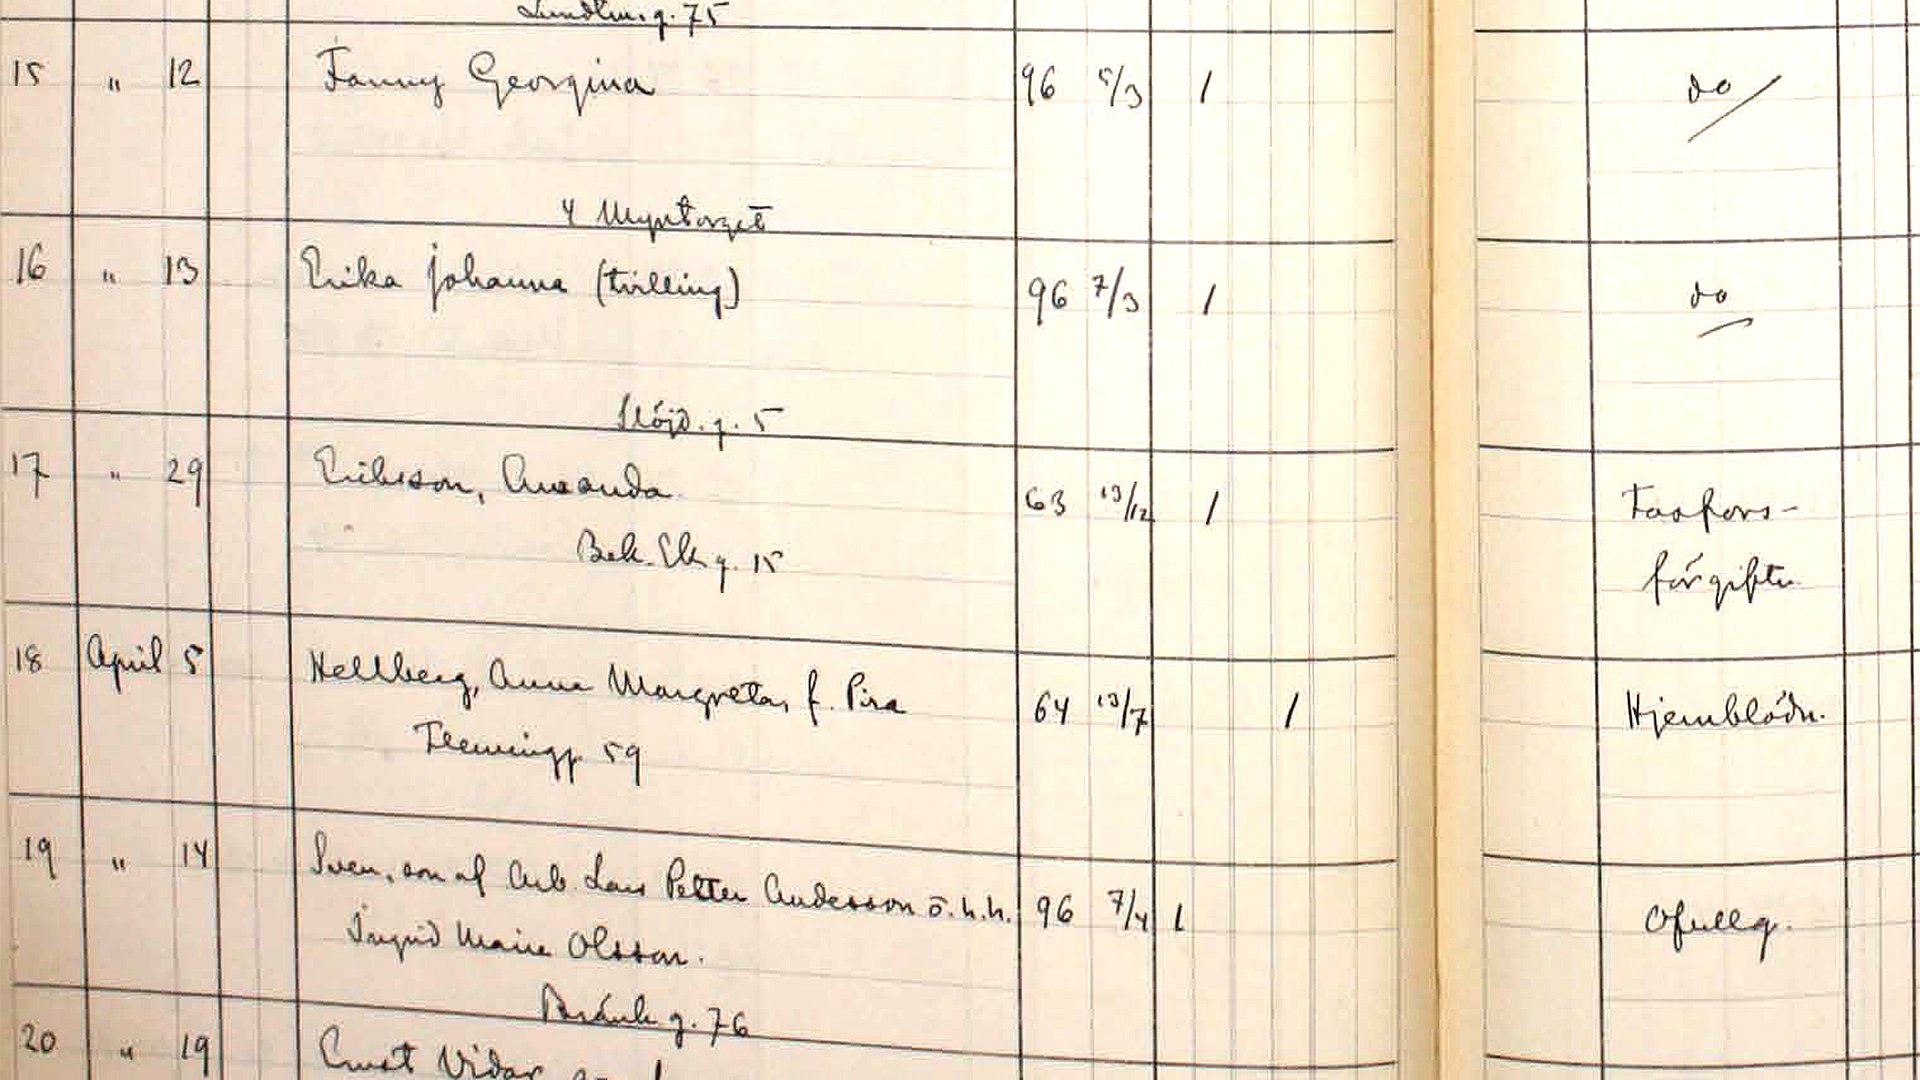 Lundtm. g. 75
15 " 12 Fanny Georgina 96 5/3 1 do
4 Myntorget
16 " 13 Erika Johanna (tvilling) 96 7/3 1 do
Slöjd. g. 5
17 " 29 Eriksson, Amanda 63 13/12 1 Fosfors-
Bek. Ek g. 15 förgiftn.
18 April 5 Hellberg, Anna Margreta, f. Pira 64 13/7 1 Hjernblödn.
Flemingg 59
19 " 14 Sven, son af Arb. Lars Petter Andersson o. h. h. 96 7/4 1 Ofullg.
Ingrid Maria Olsson.
g. 76
20 " 19 Ernst Vidar